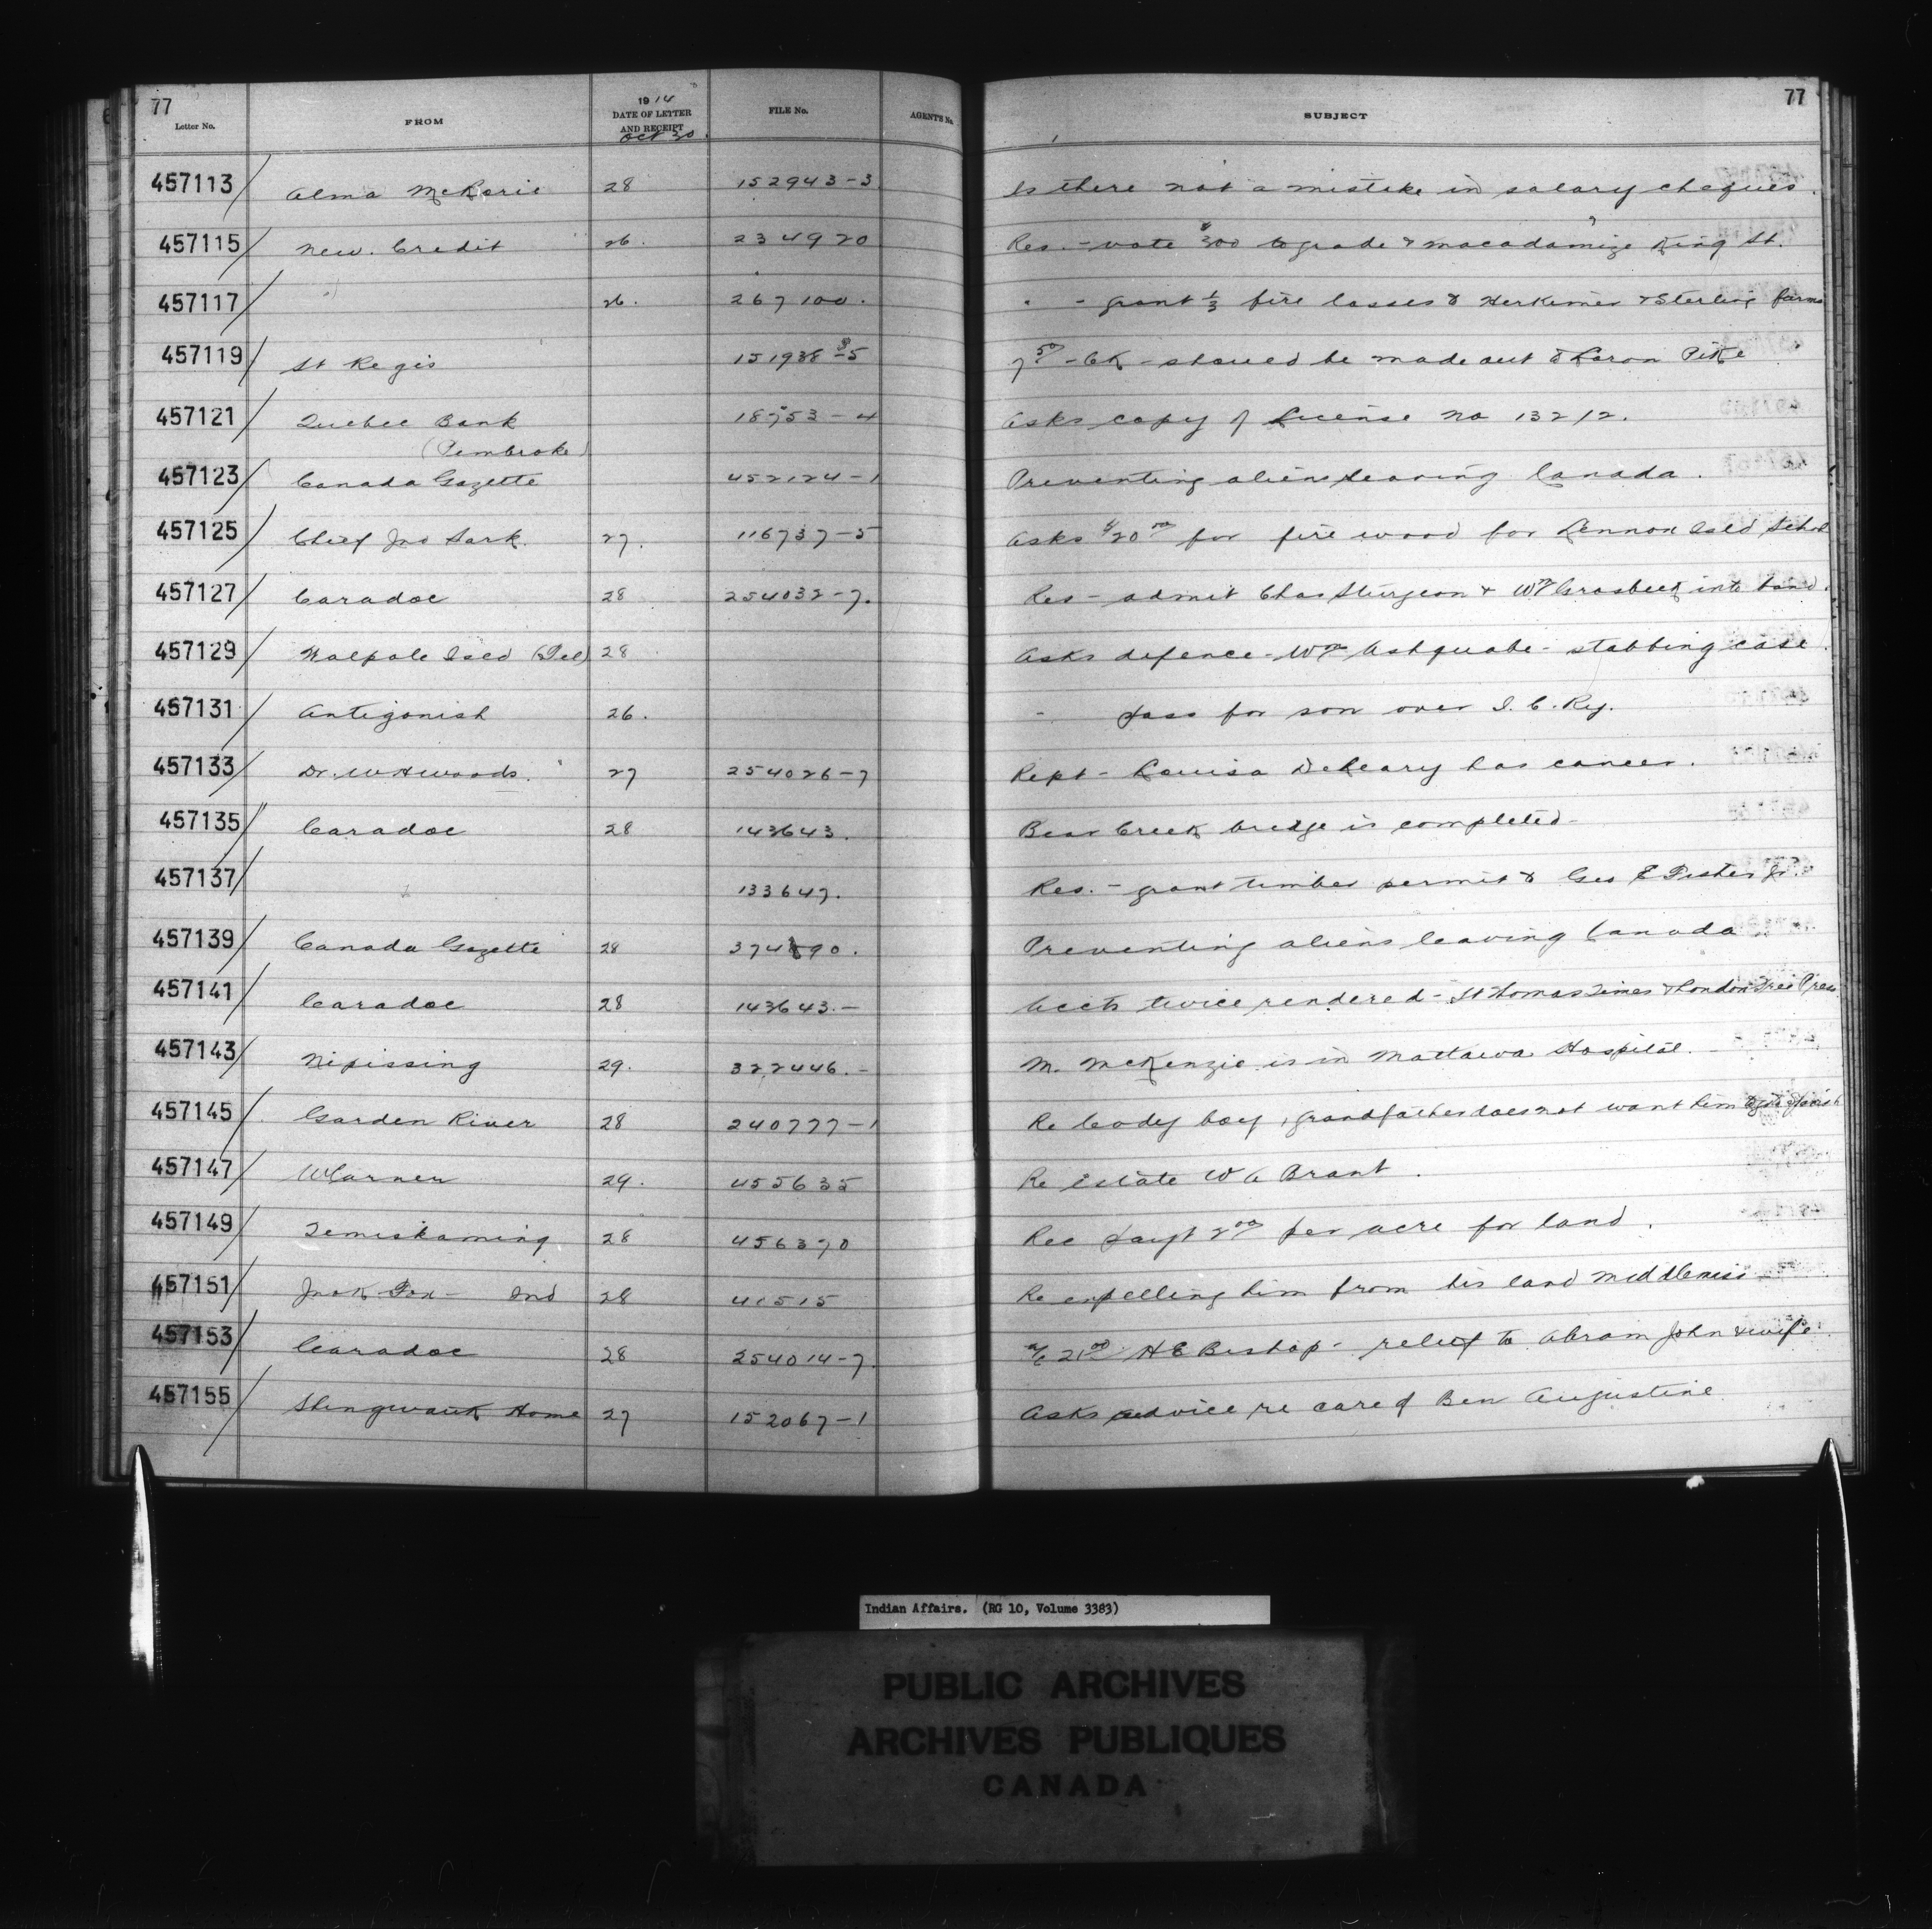 77
77
Letter No. FROM 1914 DATE OF LETTER AND RECEIPT Oct 30 FILE No. AGENT'S No. SUBJECT
457113 Alma McRorie 28 152943-3 Is there not a mistake in salary cheques.
457115 New. Credit 26. 234920 Res. - vote $300 to grade & macadamize King St.
457117 " 26. 267100. " - grant 1/3 fire losses to Herkimer & Sterling farms
457119 St Regis 151938-5 7 50 - Ck - should be made out to Pike
457121 Quebec Bank 18753-4 Asks copy of License No 13212.
(Pembroke)
457123 Canada Gazette 452124-1 Preventing aliens leaving Canada.
457125 Chief Jno Sark. 27. 116737-5 Asks $20 00 for fire wood for Lennox Isld School
457127 Caradoc 28 254032-7. Res - admit Chas Sturgeon & Wm Grosbeck into band.
457129 Walpole Isld (Tel) 28 Asks defence - Wm Ashquabe - stabbing case.
457131 Antigonish 26. " pass for son over I. C. Ry.
457133 Dr. W H Woods. 27 254026-7 Rept - Louisa DeLeary has cancer.
457135 Caradoc 28 143643. Bear Creek bridge is completed -
457137 " 133647. Res. - grant timber permit to Geo E Fisher Jr.
457139 Canada Gazette 28 374890. Preventing aliens leaving Canada
457141 Caradoc 28 143643.- Accts twice rendered - St Thomas Times & London Free Press
457143 Nipissing 29. 322446.- M. McKenzie is in Mattawa Hospital.
457145 Garden River 28 240777-1 Re Cody boy, grandfather does not want him
457147 Warner 29. 455635 Re Estate W A Brant.
457149 Temiskaming 28 456370 Rec payt 2 00 per acre for land.
457151 Jack Fox - Ind 28 41515 Re expelling him from his land Middlemiss
457153 Caradoc 28 254014-7. a/c 21 00 H E Bishop - relief to Abram John & wife.
457155 Shingwauk Home 27 152067-1 Asks advice re care of Ben Augustine
Indian Affairs. (RG 10, Volume 3383)
PUBLIC ARCHIVES
ARCHIVES PUBLIQUES
CANADA